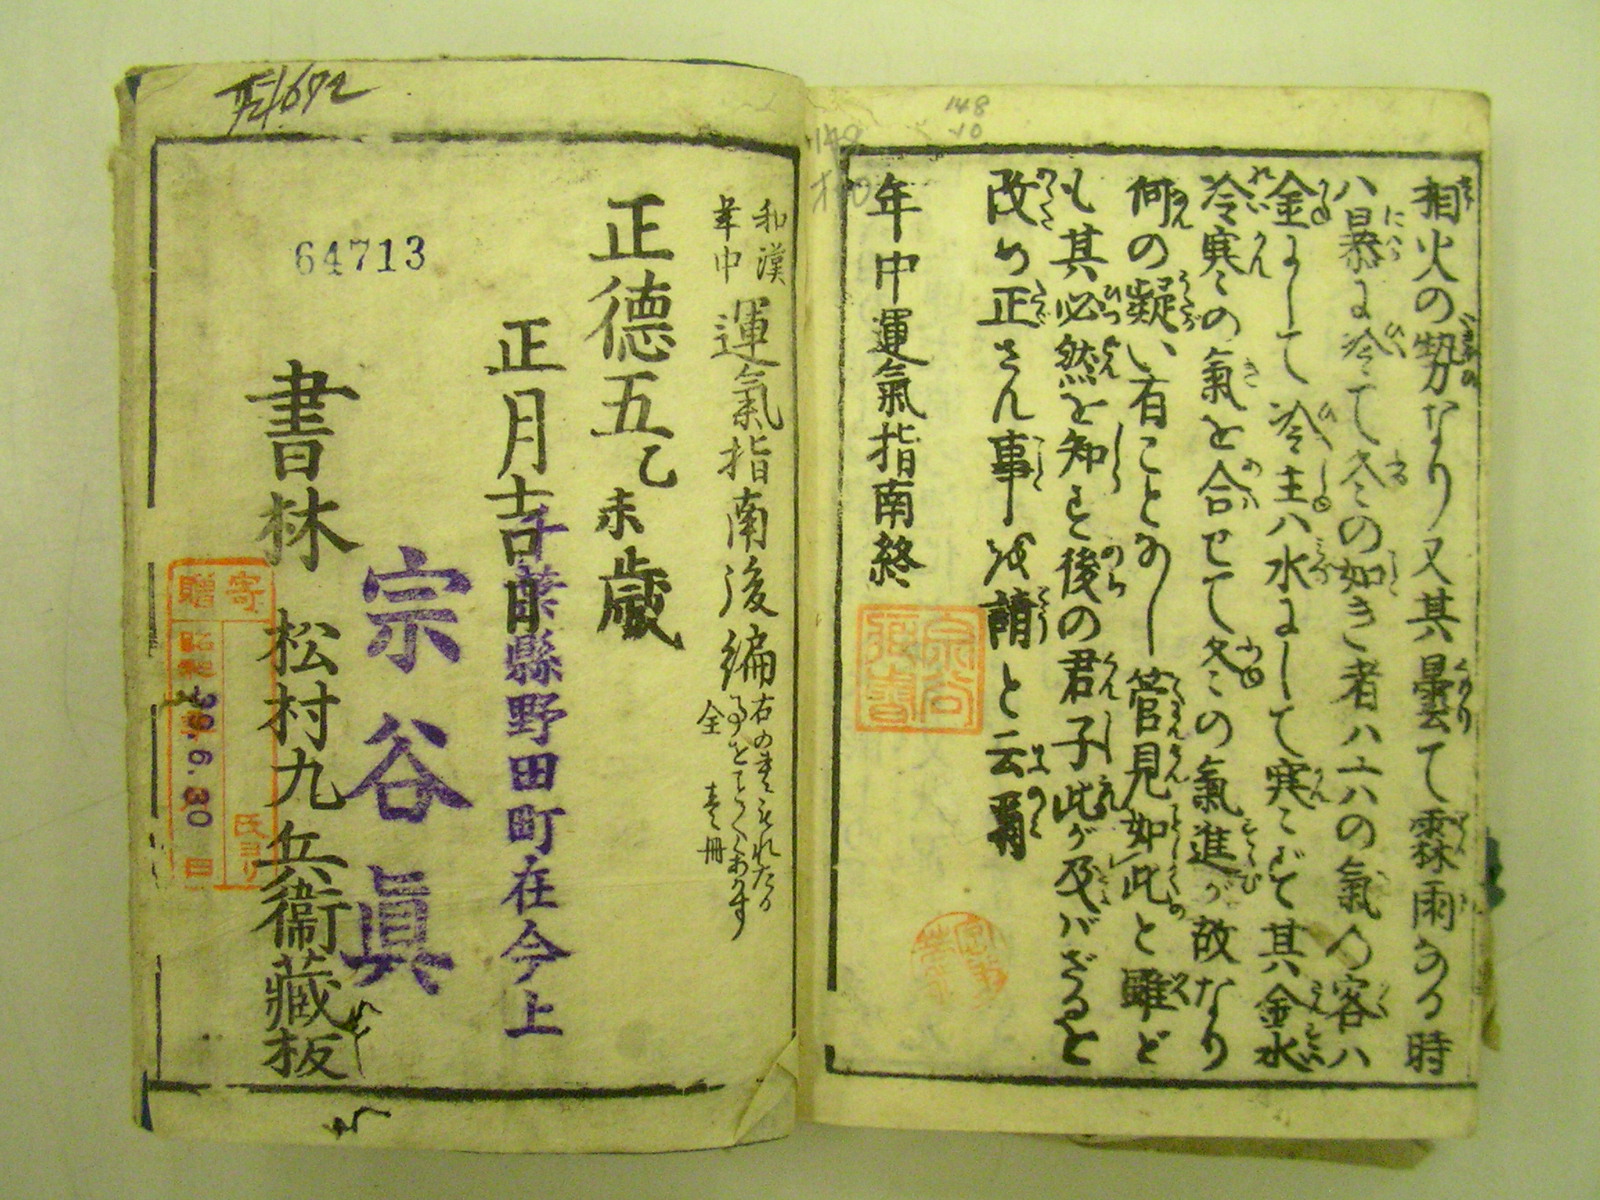 148
10
相火の勢なり又其曇て霖雨する時
ハ暴に冷て冬の如き者ハ六八の氣の客ハ
金にして冷主ハ水にして寒ニて其金水
冷寒ミの氣を合せて冬ミの氣進が故なり
何の凝い有ことあし管見如此と雖ど
も其必然を知ミ後の君子此が及バざるを
改め正さん事を請と云爾
年中運氣指南終
和漢
年中
運氣指南後編
全
壱冊
正德五乙未歳
正月吉日
千葉縣野田町在今上
宗谷眞
書林 松村九兵衞藏板
64713
寄贈
昭和
29.6.30
日
氏ヨリ